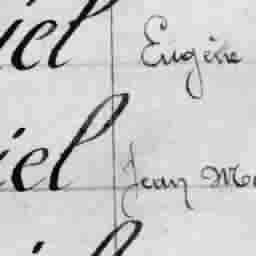 iel Eugène
iel Jean Ma